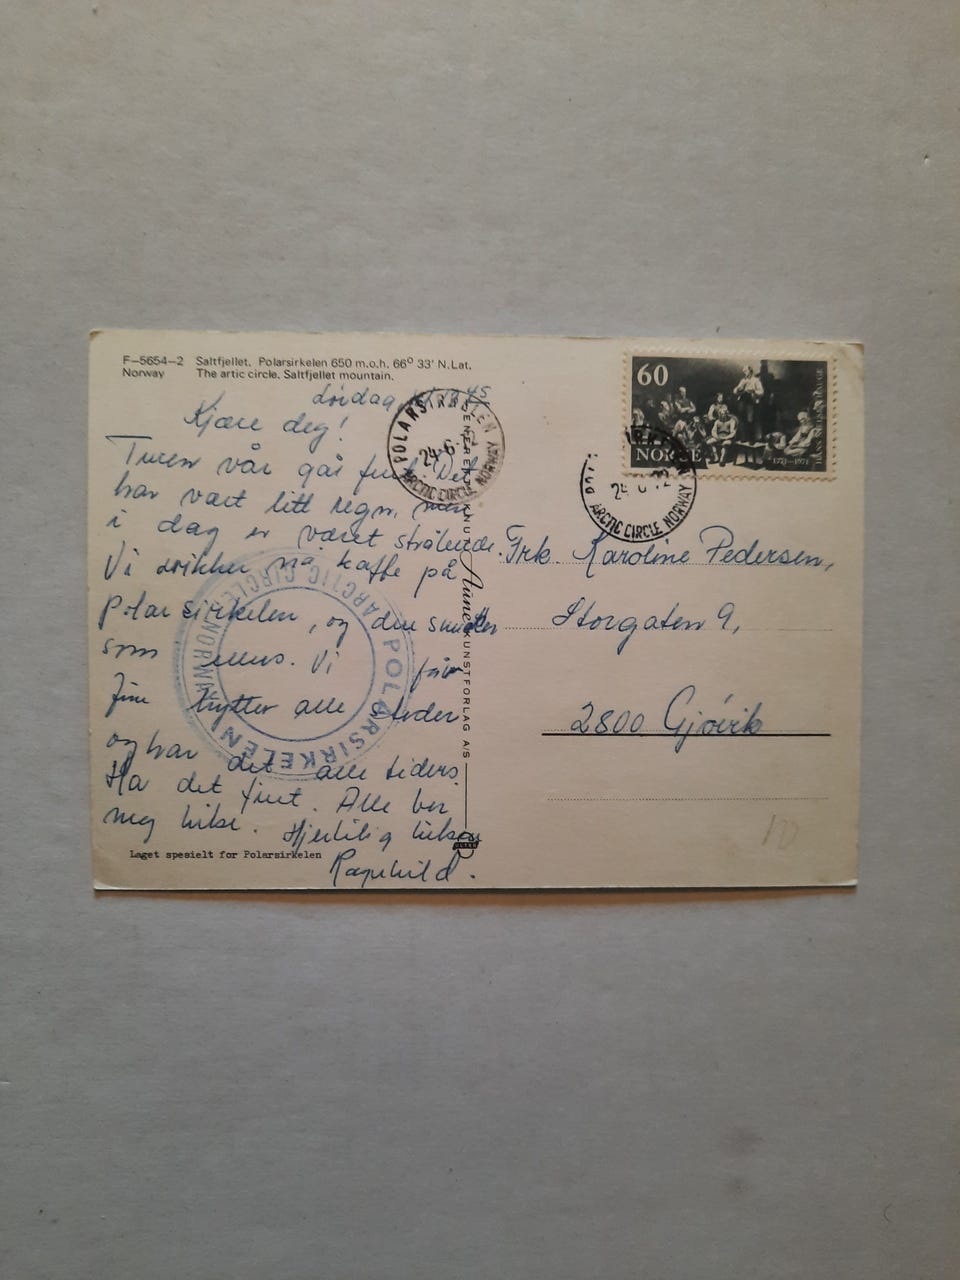 F-5654-2 Saltfjellet. Polarsirkelen 650 m.o.h. 66° 33' N.Lat.
Norway The artic circle. Saltfjellet mountain.
Lørdag 45
Kjære deg!
Turen vår går fint. Det
har vært litt regn, men
i dag er været strålende.
Vi drikker nå kaffe på
Polarsirkelen, og den smaker
som ellers. Vi får
fine hytter alle steder
og har det alle tiders.
Ha det fint. Alle ber
meg hilse. Hjertelig hilsen
Ragnhild.
Laget spesielt for Polarsirkelen
POLARSIRKELEN
24-6-72
ARCTIC CIRCLE NORWAY
POLARSIRKELEN
ARCTIC CIRCLE NORWAY
ENERET: KNUT Aune KUNSTFORLAG A/S
60
NORGE
1771-1971
24 6 72
ARCTIC CIRCLE NORWAY
Frk. Karoline Pedersen,
Storgaten 9,
2800 Gjøvik
10